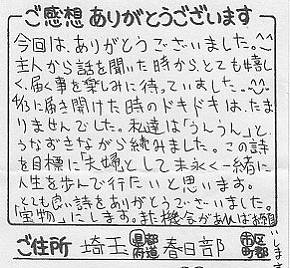 ご感想 ありがとうございます
今回は、ありがとうございました。^^
主人から話を聞いた時から、とても嬉し
く、届く事を楽しみに待っていました。
に届き開けた時のドキドキは、たま
りませんでした。私達は「うんうん」と、
うなずきながら読みました。この詩
を目標に夫婦として末永く一緒に
人生を歩んで行たいと思います。
とても良い詩をありがとうございました。
「宝物」にします。又、機会があればお願い
します。
ご住所 埼玉 都道府県 春日部 市区町郡